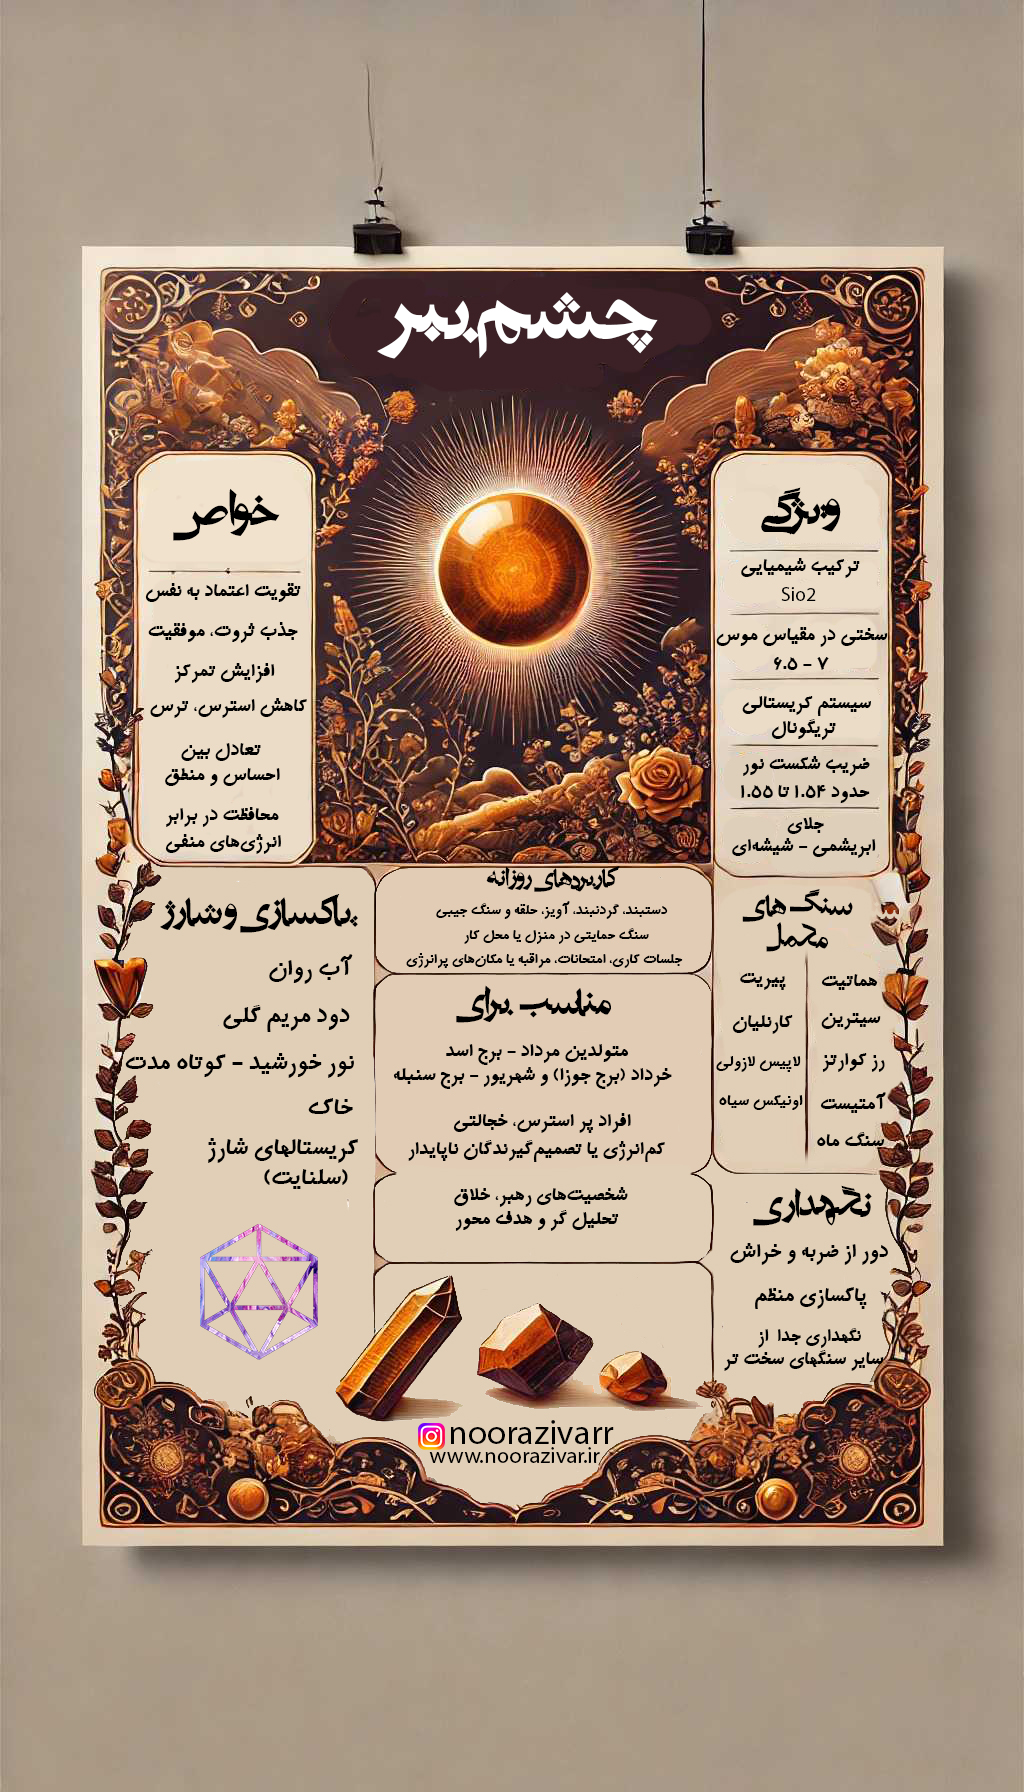 چشم ببر
ویژگی
ترکیب شیمیایی
Sio2
سختی در مقیاس موس
۶.۵ - ۷
سیستم کریستالی
تریگونال
ضریب شکست نور
حدود ۱.۵۴ تا ۱.۵۵
جلای
ابریشمی - شیشه‌ای
خواص
تقویت اعتماد به نفس
جذب ثروت، موفقیت
افزایش تمرکز
کاهش استرس، ترس
تعادل بین
احساس و منطق
محافظت در برابر
انرژی‌های منفی
سنگ های
مکمل
هماتیت
سیترین
رز کوارتز
آمتیست
سنگ ماه
پیریت
کارنلیان
لاپیس لازولی
اونیکس سیاه
کاربردهای روزانه
دستبند، گردنبند، آویز، حلقه و سنگ جیبی
سنگ حمایتی در منزل یا محل کار
جلسات کاری، امتحانات، مراقبه یا مکان‌های پرانرژی
مناسب برای
متولدین مرداد - برج اسد
خرداد (برج جوزا) و شهریور - برج سنبله
افراد پر استرس، خجالتی
کم‌انرژی یا تصمیم‌گیرندگان ناپایدار
شخصیت‌های رهبر، خلاق
تحلیل گر و هدف محور
پاکسازی و شارژ
آب روان
دود مریم گلی
نور خورشید - کوتاه مدت
خاک
کریستالهای شارژ
(سلنایت)
نگهداری
دور از ضربه و خراش
پاکسازی منظم
نگهداری جدا از
سایر سنگهای سخت تر
noorazivarr
www.noorazivar.ir